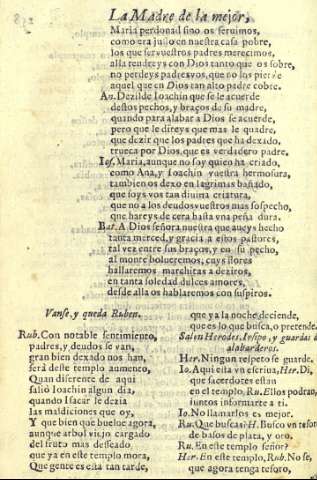 La Madre de la mejor,
Maria perdonad sino os seruimos,
como era justo en nuestra casa pobre,
los que ser vuestros padres merecimos,
alla tendreys con Dios tanto que os sobre,
no perdeys padres vos, que no los pierde
aquel que en Dios tan alto padre cobre.
An. Dezilde Ioachin que se le acuerde
destos pechos, y braços de su madre,
quando para alabar a Dios se acuerde,
pero que le direys que mas le quadre,
que dezir que los padres que ha dexado,
trueca por Dios, que es verdadero padre.
Ios. Maria, aunque no soy quien ha criado,
como Ana, y Ioachin vuestra hermosura,
tambien os dexo en lagrimas bañado,
que soys vos tan diuina criatura,
que no a los deudos vuestros mas sospecho,
que hareys de cera hasta vna peña dura.
Bat. A Dios señora nuestra que aueys hecho
tanta merced, y gracia a estos pastores,
tal vez entre sus braços, y en su pecho,
al monte bolueremos, cuys flores
hallaremos marchitas a deziros,
en tanta soledad dulces amores,
desde alla os hablaremos con suspiros.
Vanse, y queda Ruben.
Rub. Con notable sentimiento,
padres, y deudos se van,
gran bien dexado nos han,
será deste templo aumento,
Quan diferente de aqui
salió Ioachin algun dia,
quando Isacar le dezia
las maldiciones que oy,
Y que bien que buelue agora,
aunque arbol viejo cargado
del fruto mas desseado
que ya en este templo mora,
Que gente es esta tan tarde,
que ya la noche deciende,
que es lo que busca, o pretende.
Salen Herodes, Iosipo, y guardas de
alabarderos.
Her. Ningun respeto se guarde.
Io. Aqui esta vn escriua, Her. Di,
que sacerdotes estan
en el templo, Ru. Ellos podran,
juntos informarte a ti.
Io. No llamarlos es mejor.
Ru. Que buscas? H. Busco vn tesoro
de basos de plata, y oro.
Ru. En este templo señor?
Her. En este templo, Rub. No se,
que agora tenga tesoro,